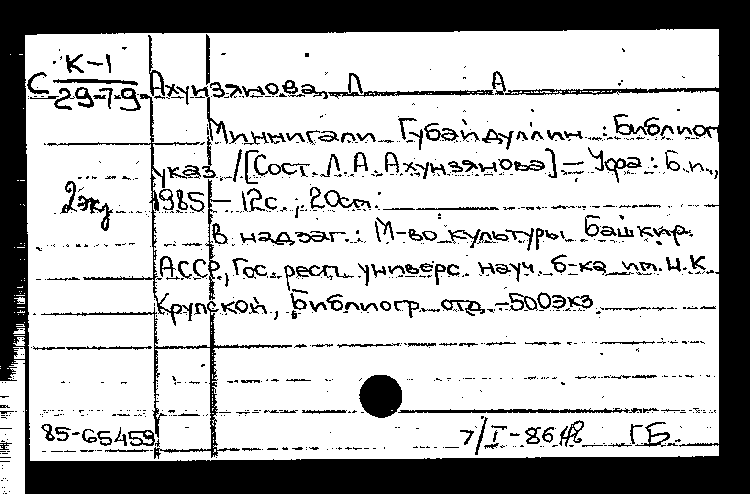 С К-1
29-7-9
Ахунзянова, Л А
Миннигали Губайдуллин : Библиог
указ. /[Сост. Л.А. Ахунзянова] – Уфа : Б.и.,
2экз 1985 – 12с. ; 20см.
В надзаг.: М-во культуры Башкир.
АССР, Гос. респ. универс. науч. б-ка им. Н.К.
Крупской, Библиогр. отд. –500экз.
85-65459 7/I-86 ГБ.